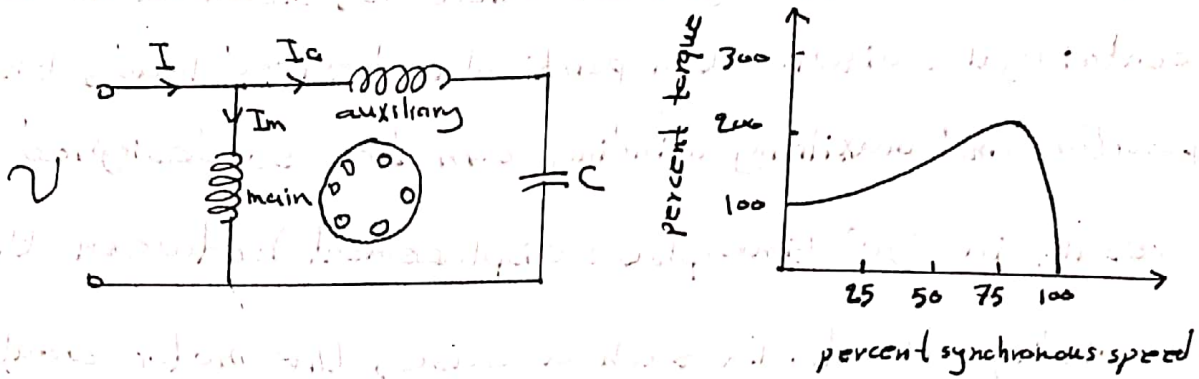 I
Ia
auxiliary
Im
V
main
C
percent torque
300
200
100
25 50 75 100
percent synchronous speed